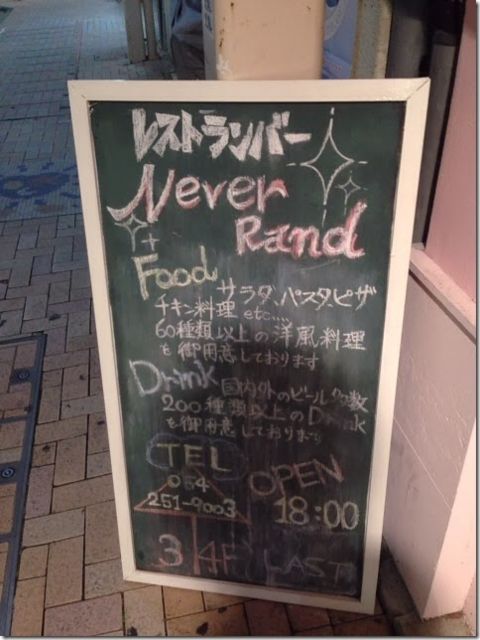 レストランバー
Never
Rand
Food
サラダ、パスタピザ
チキン料理 etc....
60種類以上の洋風料理
を御用意しております
Drink
国内外のビール多数
200種類以上のDrink
を御用意しております
TEL
054
251-9003
OPEN
18:00
3 4F
LAST